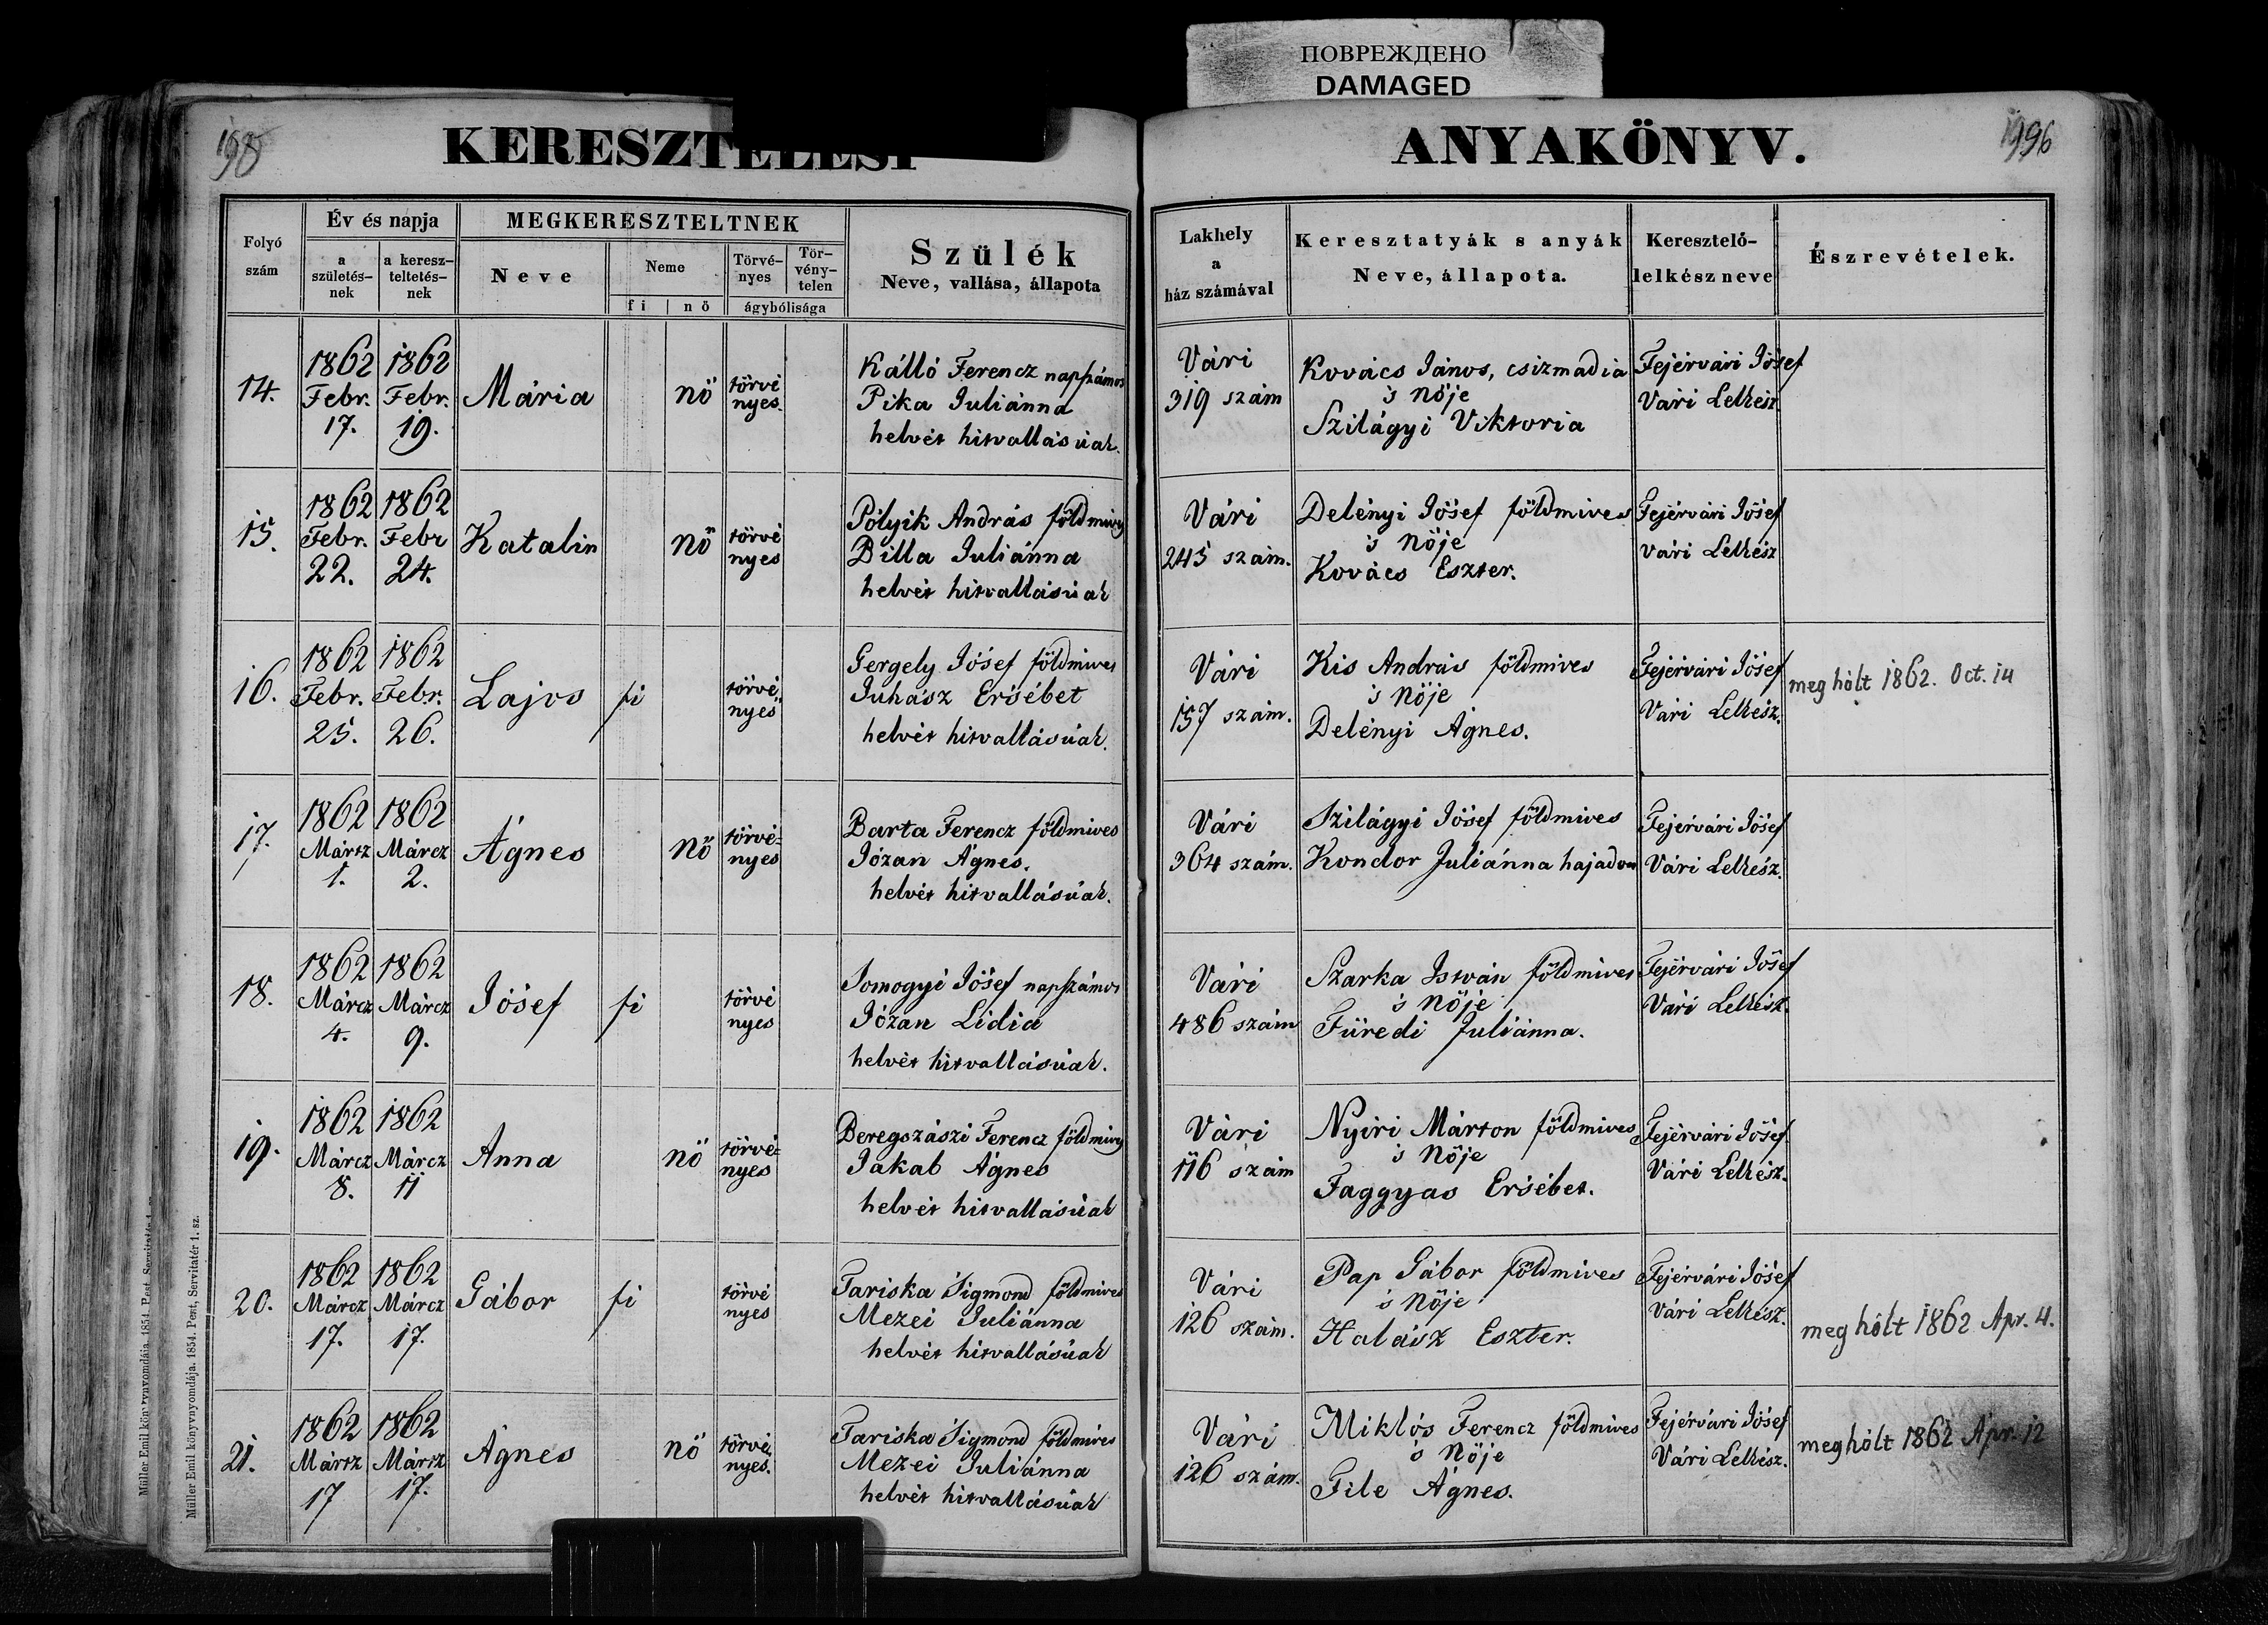 ПОВРЕЖДЕНО
DAMAGED
198
KERESZTELÉSI
ANYAKÖNYV.
Folyó szám
Év és napja
a születés-nek
a keresz-teltetés-nek
MEGKERESZTELTNEK
Neve
Neme
fi
nö
Törvé-nyes
Tör-vény-telen
ágybólisága
Szülék
Neve, vallása, állapota
Lakhely
a
ház számával
Keresztatyák s anyák
Neve, állapota.
Keresztelő-
lelkész neve
Észrevételek.
14.
1862 Febr. 17.
1862 Febr. 19.
Mária
nö
törvé nyes.
Kálló Ferencz napszámos
Pika Juliánna
helvét hitvallásúak.
Vári
319 szám
Kovács János, csizmadia
's nöje
Szilágyi Viktoria
Fejérvári Jósef
Vári Lelkész
15.
1862 Febr. 22.
1862 Febr 24.
Katalin
nö
törvé nyes
Pólyik András földmives
Billa Juliánna
helvét hitvallásúak
Vári
245 szám.
Delényi Jósef földmives
's Nöje
Kovács Eszter.
Fejérvári Jósef
vári Lelkész
16.
1862 Febr. 25.
1862 Febr. 26.
Lajos
fi
törvé nyes
Gergely Jósef földmives
Juhász Ersébet
helvét hitvallásúak.
Vári
157 szám.
Kis András földmives
's Nöje
Delényi Ágnes.
Fejérvári Jósef
Vári Lelkész.
meg hólt 1862. Oct. 14
17.
1862 Märcz 1.
1862 Márcz 2.
Ágnes
nö
törvé-nyes
Barta Ferencz földmives
Józan Ágnes.
helvét hitvallásúak.
Vári
364 szám.
Szilágyi Jósef földmives
Kondor Juliánna hajadon
Fejérvári Jósef
Vári Lelkész.
18.
1862 Márcz 4.
1862 Márcz 9.
Jósef
fi
törvé nyes
Somogyi Jósef napszámos
Józan Lidia
helvét hitvallásúak.
Vári
486 szám
Szarka István földmives
's Nöje
Füredi Juliánna.
Fejérvári Jósef
Vári Lelkész.
19.
1862 Márcz 8.
1862 Márcz 11
Anna
nö
törvé-nyes
Beregszászi Ferencz földmives
Jakab Ágnes
helvét hitvallásúak
Vári
116 szám
Nyiri Márton földmives
's Nöje
Faggyas Ersébet.
Fejérvári Jósef
Vári Lelkész.
20.
1862 Márcz 17.
1862 Márcz 17.
Gábor
fi
törvé nyes
Tariska Sigmond földmives
Mezei Juliánna
helvét hitvallásúak
Vári
126 szám.
Pap Gábor földmives
's Nöje
Halász Eszter.
Fejérvári Jósef
Vári Lelkész.
meg hólt 1862 Apr. 4.
21.
1862 Märcz 17
1862 Märcz 17.
Ágnes
nö
törvé nyes.
Tariska Sigmond földmives
Mezei Juliánna
helvét hitvallásúak
Vári
126 szám.
Miklós Ferencz földmives
's Nöje
File Ágnes.
Fejérvári Jósef
Vári Lelkész.
meg hólt 1862 Apr. 12
Müller Emil könyvnyomdája. 1854. Pest, Servitatér 1. sz.